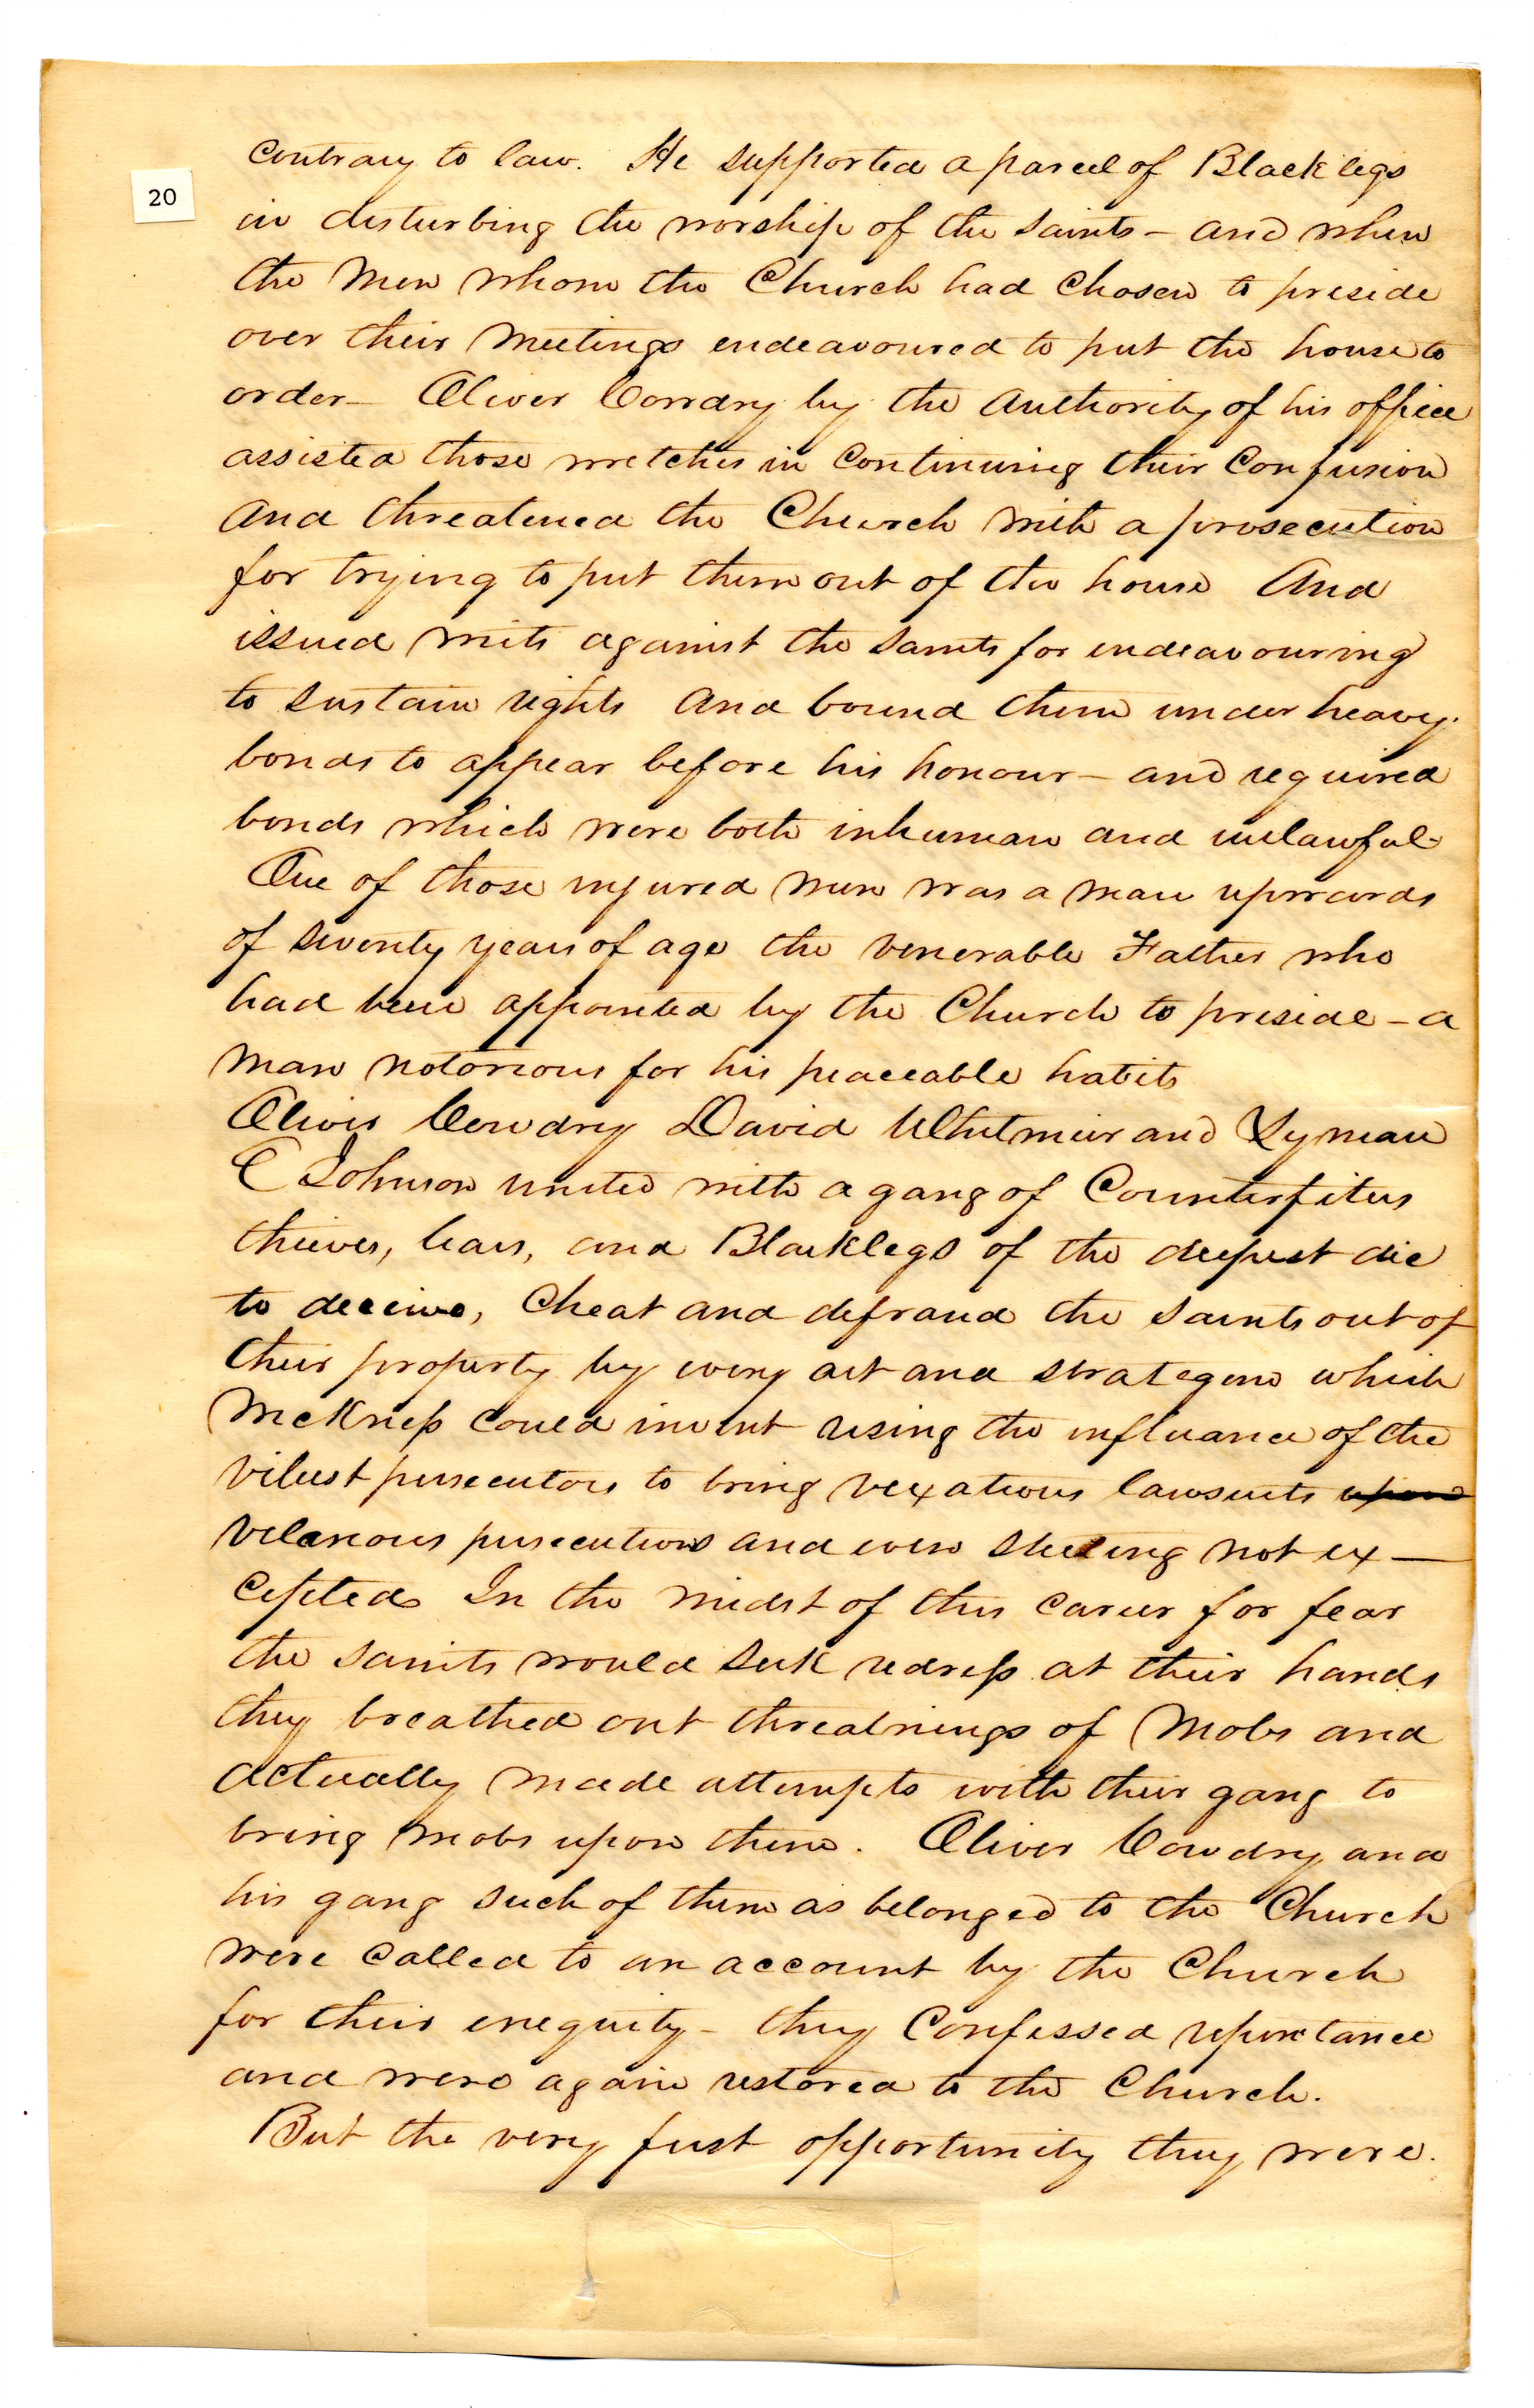 20
contrary to law. He supported a parcel of Black legs
in disturbing the worship of the saints – and when
the Men whom the Church had Chosen to preside
over their Meetings endeavoured to put the house to
order – Oliver Cowdry by the Authority of his office
assisted those wretches in Continuing their Confusion
And threatened the Church with a prosecution
for trying to put them out of the house And
issued writs against the saints for endeavouring
to sustain rights And bound them under heavy
bonds to appear before his honour – and required
bonds which were both inhuman and unlawful
One of those injured men was a man upwards
of seventy years of age the venerable Father who
had been appointed by the Church to preside – a
Man notorious for his peaceable habits
Oliver Cowdry David Whitmeir and Lyman
E Johnson united with a gang of Counterfiters
thieves, liars, and Blacklegs of the deepest die
to deceive, Cheat and defraud the saints out of
their property by every art and stratagem which
Wickness could invent using the influance of the
vilest persecutors to bring vexatious lawsuits upon
vilanous persecutions and even steeling not ex–
cepted In the midst of this career for fear
the saints would seek redress at their hands
they breathed out threatnings of Mobs and
Actually made attempts with their gang to
bring Mobs upon them. Oliver Cowdry and
his gang such of them as belonged to the Church
were called to an account by the Church
for their eneguity – they Confessed repentance
and were again restored to the Church.
But the very first opportunity they were.